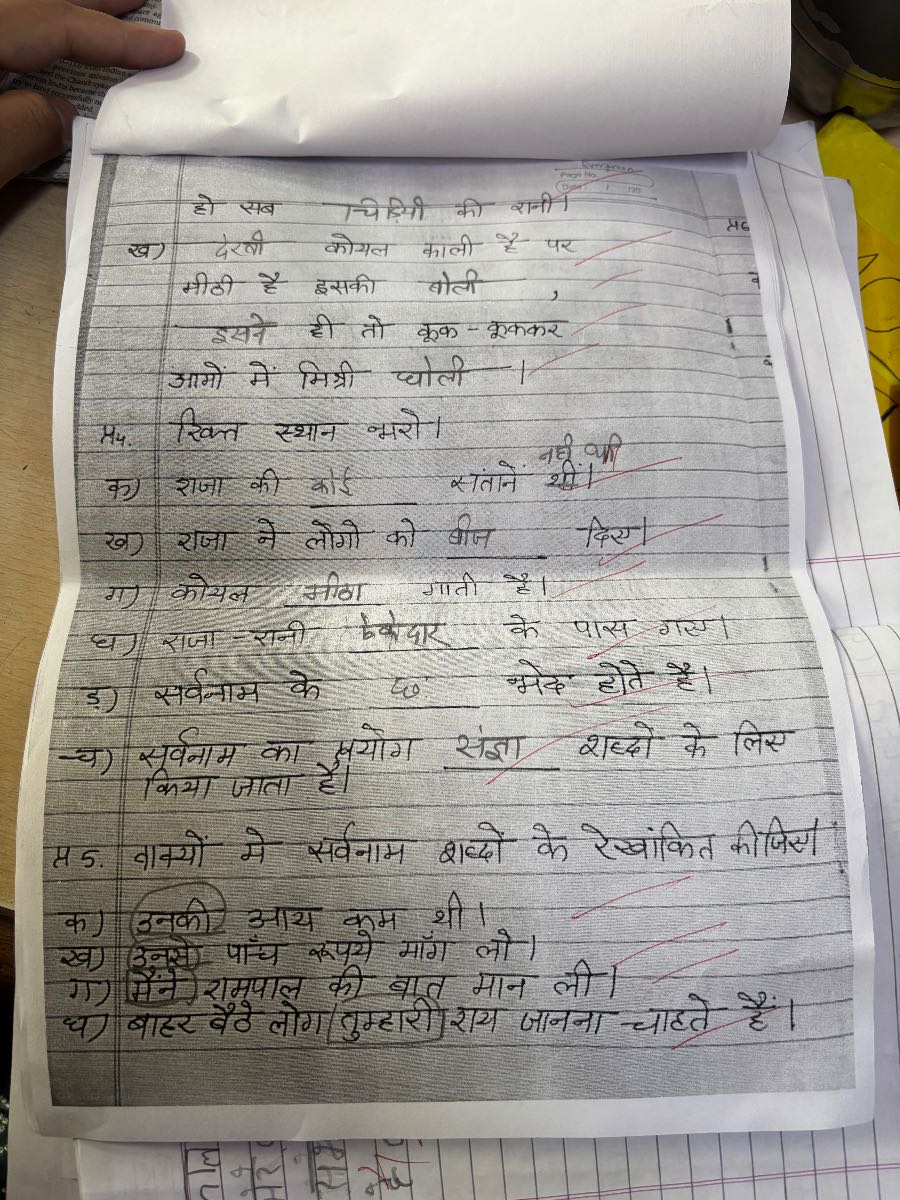 Page No.
Date
हो सब चिड़ियों की रानी।
ख) देखी कोयल काली है पर
मीठी है इसकी बोली ,
इसने ही तो कूक-कूककर
आमों में मिश्री घोली ।
प्र4. रिक्त स्थान भरो।
नहीं थी
क) राजा की कोई संतानें थीं।
ख) राजा ने लोगो को बीज दिए।
ग) कोयल मीठा गाती है।
घ) राजा-रानी ठेकेदार के पास गए।
ड़) सर्वनाम के छ भेद होते है।
च) सर्वनाम का प्रयोग संज्ञा शब्दो के लिए
किया जाता है।
प्र5. वाक्यों मे सर्वनाम शब्दों के रेखांकित कीजिए।
क) उनकी आय कम थी।
ख) उनसे पाँच रूपये माँग लो।
ग) मैंने रामपाल की बात मान ली।
घ) बाहर बैठे लोग तुम्हारी राय जानना चाहते हैं।
प्र6